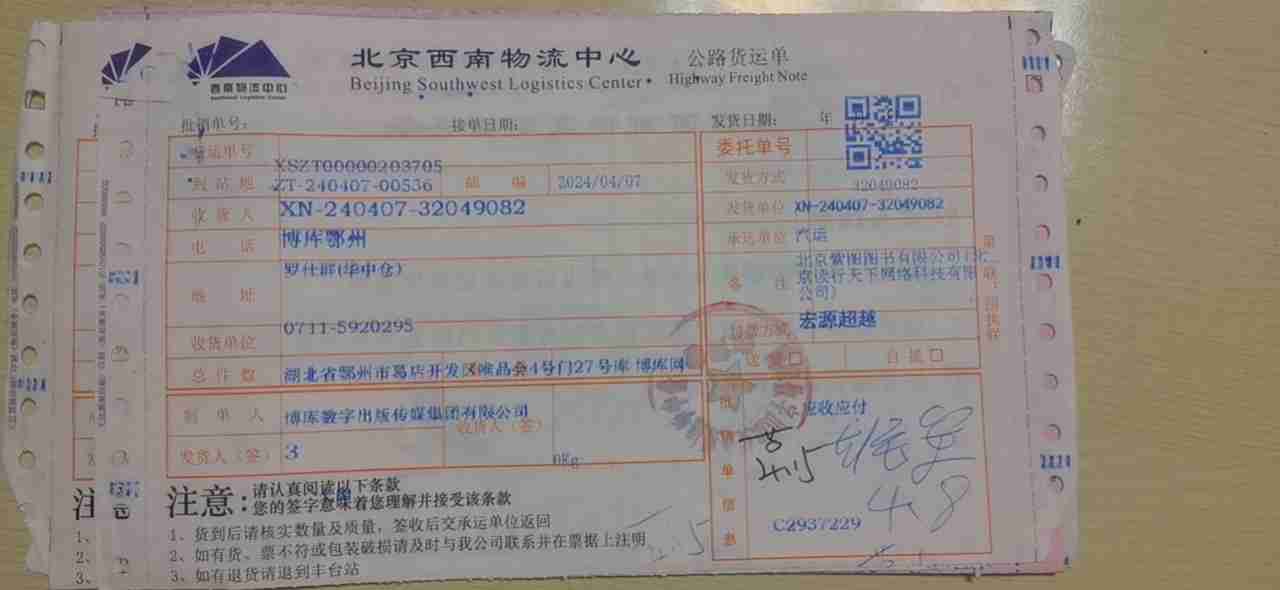 西南物流中心
北京西南物流中心 公路货运单
Beijing Southwest Logistics Center Highway Freight Note
批销单号: 接单日期: 发货日期: 年
货运单号 XSZT00000203705 委托单号
到站地 ZT-240407-00536 邮编 2024/04/07 发货方式 32049082
收货人 XN-240407-32049082 发货单位 XN-240407-32049082
电话 博库鄂州 承运单位 汽运
地址 (华中仓) 备注 北京紫图图书有限公司(北
京读行天下网络科技有限
公司)
收货单位 0711-5920295 付款方式 宏源超越
送货□ 自提□
总件数 湖北省鄂州市葛店开发区唯品会4号门27号库 博库网
制单人 博库数字出版传媒集团有限公司 收货人(签) 批销单信息 应收应付
发货人(签) 3 0Kg
4.15
4.8
C2937229
注意: 请认真阅读以下条款
您的签字意味着您理解并接受该条款
1、货到后请核实数量及质量，签收后交承运单位返回
2、如有货、票不符或包装破损请及时与我公司联系并在票据上注明
3、如有退货请退到丰台站